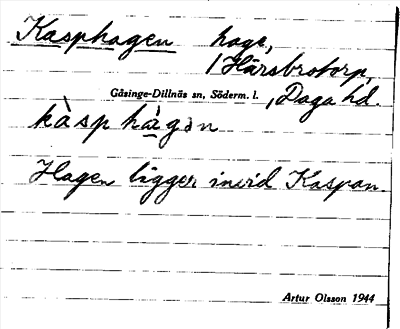 Kasphagen hage,
/ Härsbrotorp,
Gåsinge-Dillnäs sn, Söderm. l. , Daga hd.
kàsp hàgən
Hagen ligger invid Kaspan.
Artur Olsson 1944